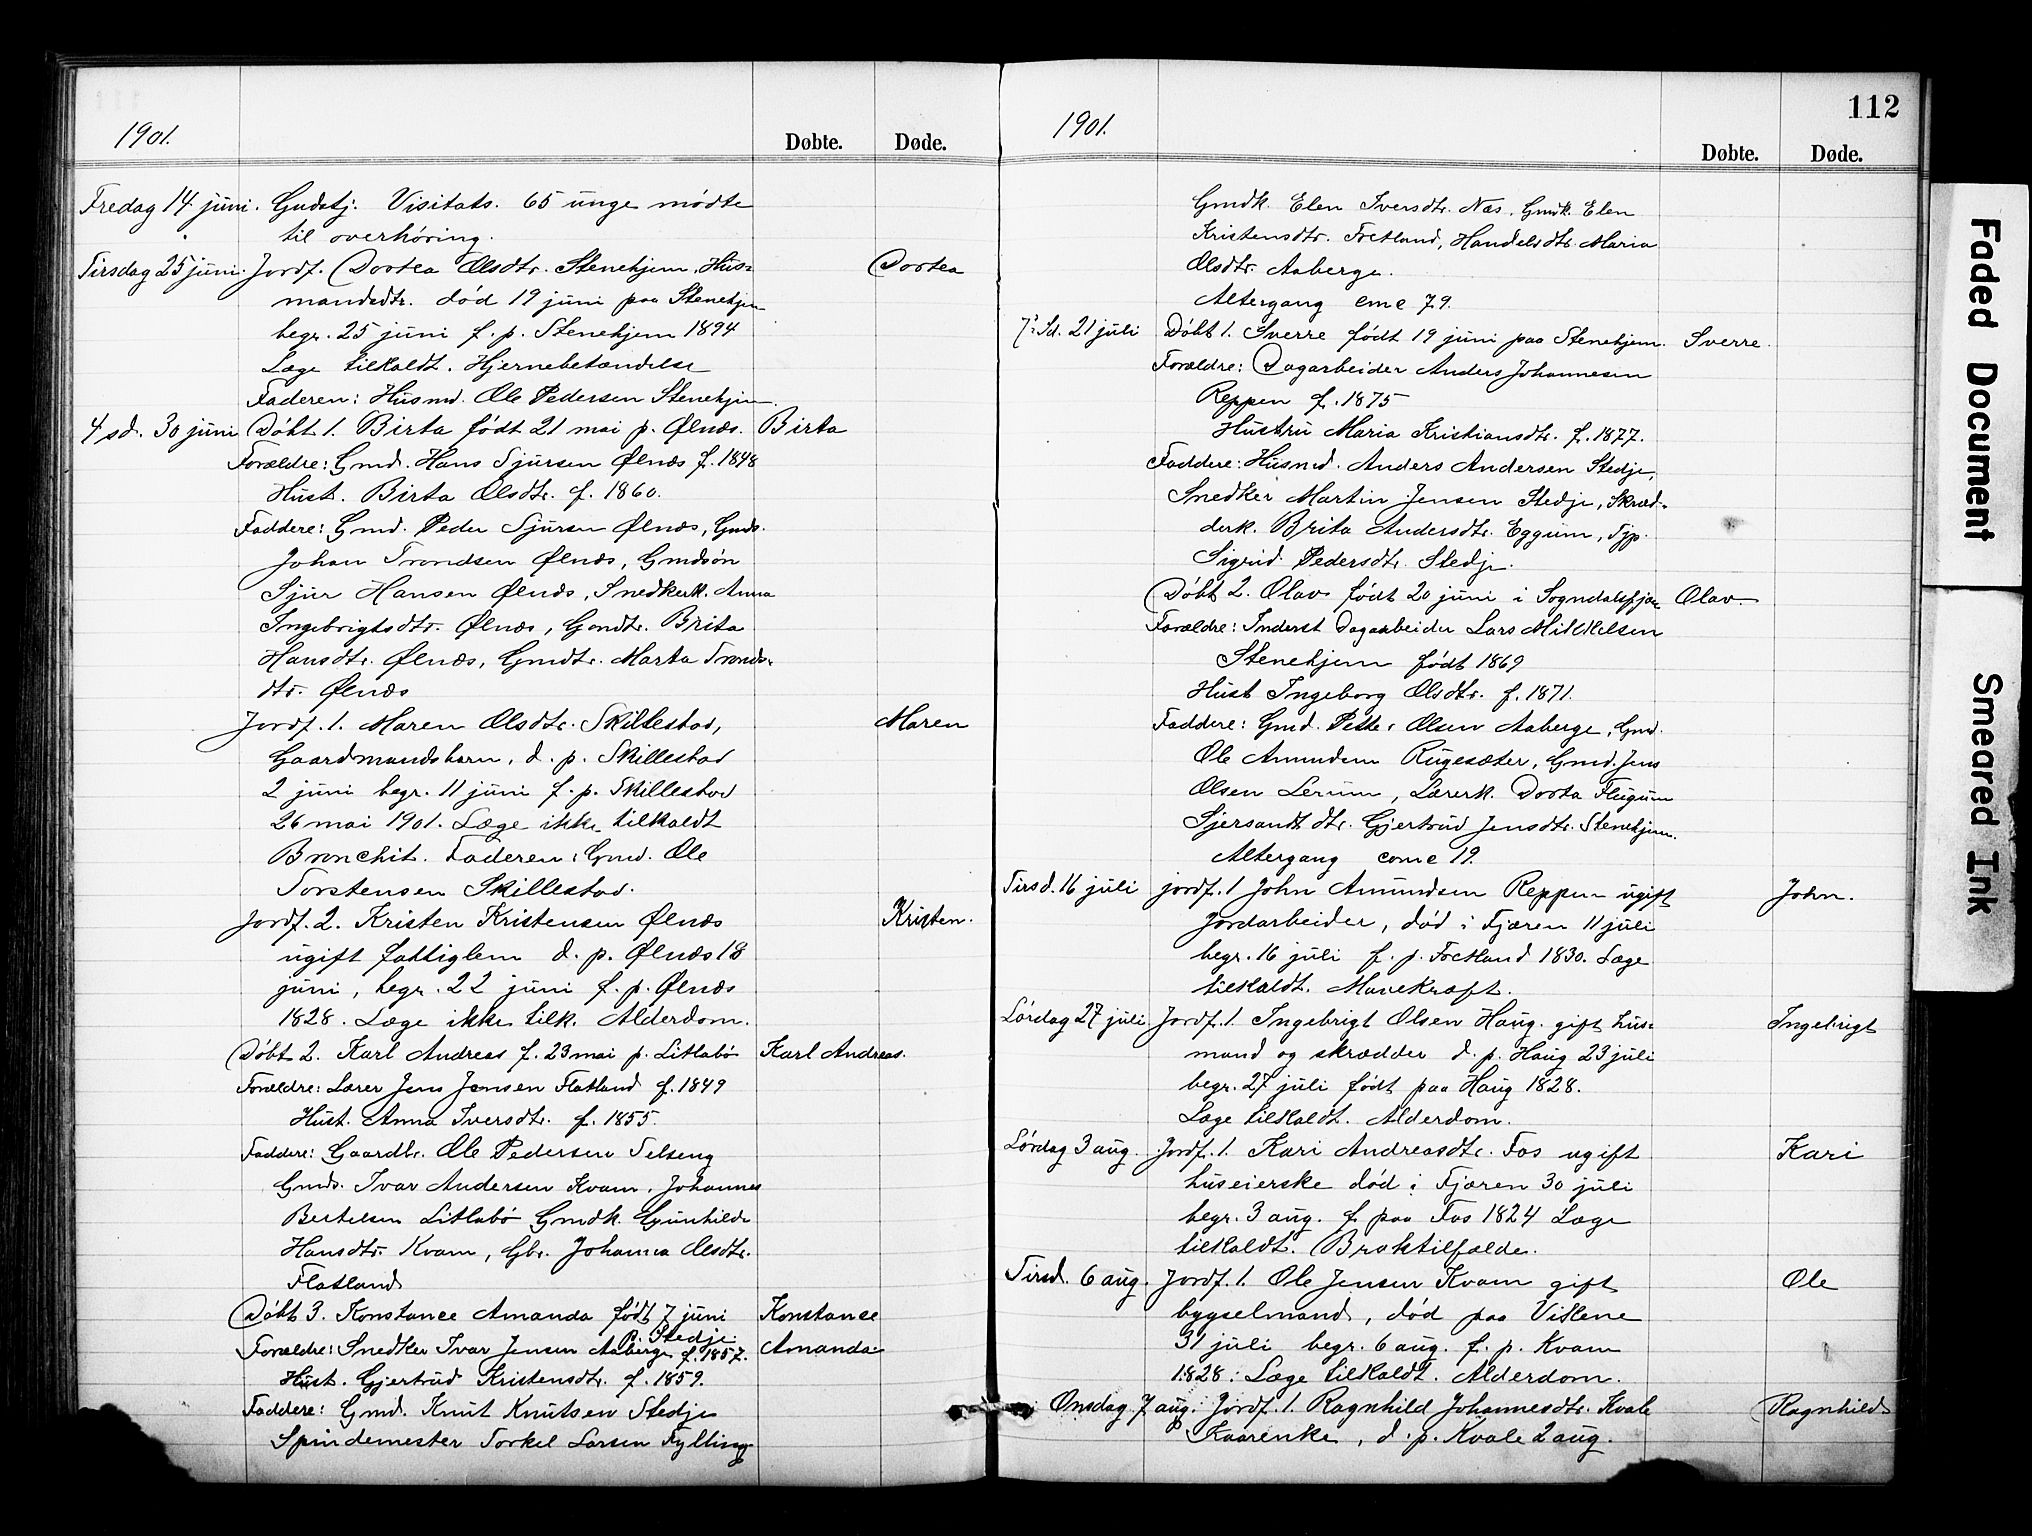 1901.
Døbte.
Døde.
Fredag 14 juni. Gudstj. Visitats. 65 unge mødte
til overhøring.
Tirsdag 25 juni. Jordf. Dortea Olsdtr. Stenehjem, Hus- Dortea
mandsdtr. død 19 juni paa Stenehjem
begr. 25 juni f. p. Stenehjem 1894
Læge tilkaldt. Hjernebetændelse
Faderen: Husmd. Ole Pedersen Stenehjem.
4 sd. 30 juni Døbt 1. Birta født 21 mai p. Ølnæs. Birta
Forældre: Gmd. Hans Sjursen Ølnæs f. 1848
Hust. Birta Olsdtr. f. 1860.
Faddere: Gmd. Peder Sjursen Ølnæs, Gmds.
Johan Trondsen Ølnæs, Gmdsøn
Sjur Hansen Ølnæs, Snedkerk. Anna
Ingebrigtsdtr. Ølnæs, Gmdtr. Brita
Hansdtr. Ølnæs, Gmdtr. Marta Tronds-
dtr. Ølnæs
Jordf. 1. Maren Olsdtr. Skillestad, Maren
Gaardmandsbarn, d. p. Skillestad
2 juni begr. 11 juni f. p. Skillestad
26 mai 1901. Læge ikke tilkaldt
Bronchit. Faderen: Gmd. Ole
Torstensen Skillestad.
Jordf. 2. Kristen Kristensen Ølnæs Kristen.
ugift fattiglem d. p. Ølnæs 18
juni, begr. 22 juni f. p. Ølnæs
1828. Læge ikke tilk. Alderdom.
Døbt 2. Karl Andreas f. 23 mai p. Litlabø Karl Andreas.
Forældre: Lærer Jens Jensen Flatland f. 1849
Hust. Anna Iversdtr. f. 1855.
Faddere: Gaardbr. Ole Pedersen Selseng
Gmds. Ivar Andersen Kvam, Johannes
Bertelsen Litlabø Gmdk. Gunhilde
Hansdtr. Kvam, Gbr. Johanna Olsdtr.
Flatland
Døbt 3. Konstance Amanda født 7 juni Konstance
p. Stedje
Forældre: Snedker Ivar Jensen Aaberge f. 1857. Amanda
Hust. Gjertrud Kristensdtr. f. 1859.
Faddere: Gmd. Knut Knutsen Stedje
Spindemester Torkel Larsen Fylling
112
1901.
Døbte.
Døde.
Gmdk. Elen Iversdtr. Næs, Gmdk. Elen
Kristensdtr. Fretland, Handelsdtr. Maria
Olsdtr. Aaberge.
Altergang eme 79.
7 Sd. 21 juli Døbt 1. Sverre født 19 juni paa Stenehjem. Sverre.
Forældre: Dagarbeider Anders Johannesen
Reppen f. 1875
Hustru Maria Kristiansdtr. f. 1877.
Faddere: Husmd. Anders Andersen Stedje,
Snedker Martin Jensen Stedje, Skræd-
derk. Brita Andersdtr. Eggum, Typ.
Sigrid Pedersdtr. Stedje.
Døbt 2. Olav født 20 juni i Sogndalsfjæ Olav.
Forældre: Inderst Dagarbeider Lars Mikkelsen
Stenehjem født 1869
Hust Ingeborg Olsdtr. f. 1871.
Faddere: Gmd. Petter Olsen Aaberge, Gmd.
Ole Amundsen Rugesæter, Gmd. Jens
Olsen Lerum, Lærerk. Dorta Flugum
Gjertrud Jensdtr. Stenehjem.
Altergang come 19.
Tirsd. 16 juli jordf. 1 John Amundsen Reppen ugift John.
Jordarbeider, død i Fjæren 11 juli
begr. 16 juli f. p. Fretland 1830. Læge
tilkaldt. Mavekræft.
Lørdag 27 juli Jordf. 1. Ingebrigt Olsen Haug. gift hus- Ingebrigt
mand og skrædder d. p. Haug 23 juli
begr. 27 juli født paa Haug 1828.
Læge tilkaldt. Alderdom.
Lørdag 3 aug. Jordf. 1. Kari Andreasdtr. Fos ugift Kari
huseierske død i Fjæren 30 juli
begr. 3 aug. f. paa Fos 1824 Læge
tilkaldt. Broktilfælde.
Tirsd. 6 aug. Jordf. 1. Ole Jensen Kvam gift Ole
bygselmand, død paa Vikene
31 juli begr. 6 aug. f. p. Kvam
1828. Læge tilkaldt. Alderdom.
Onsdag 7 aug. Jordf. 1. Ragnhild Johannesdtr. Kvale Ragnhild
Kaarenke, d. p. Kvale 2 aug.
Faded Document
Smeared Ink